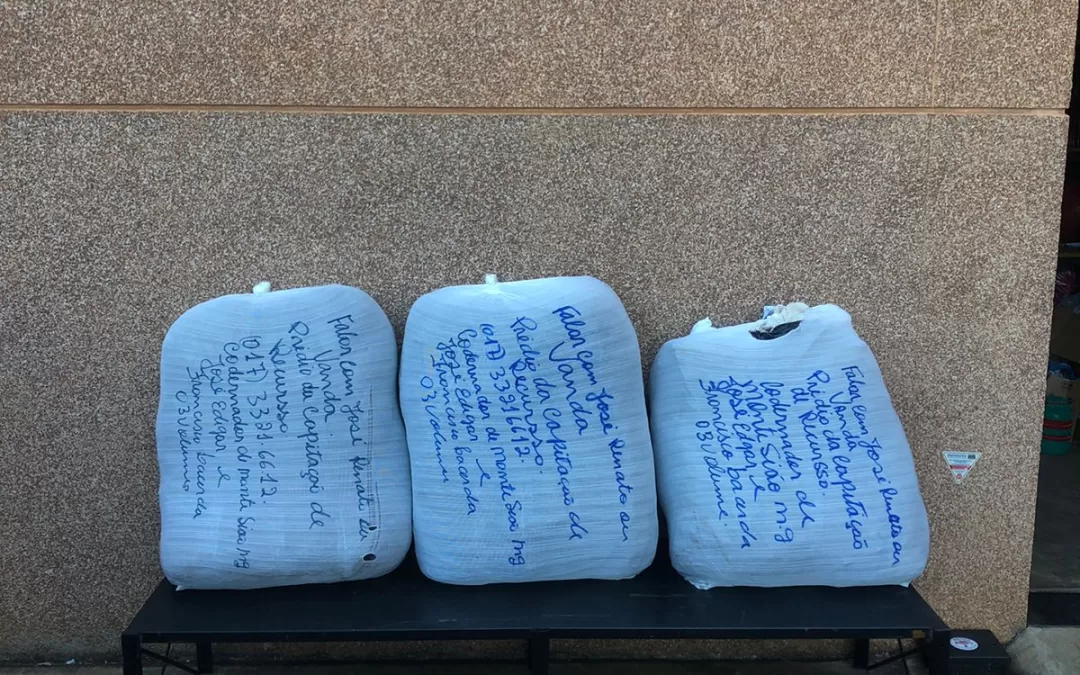 Falar com José Renato ou
Vanda
Prédio da Capitaçaõ de
Recurso
(017) 3321 6612
Codernador de monte Siaõ mg
José Edgar e
Francisco bacarda
03 volumes
Falar com José Renato ou
Vanda
Prédio da Capitaçaõ de
Recurso.
(017) 3321 6612.
Codernador de monte Siaõ mg
José Edgar e
Francisco bacarda
03 volumes
Falar com José Renato ou
Vanda
Prédio da Capitaçaõ
de Recursso.
Codernador de
Monte Siaõ m.g
José Edgar e
Francisco bacarda
03 volume.